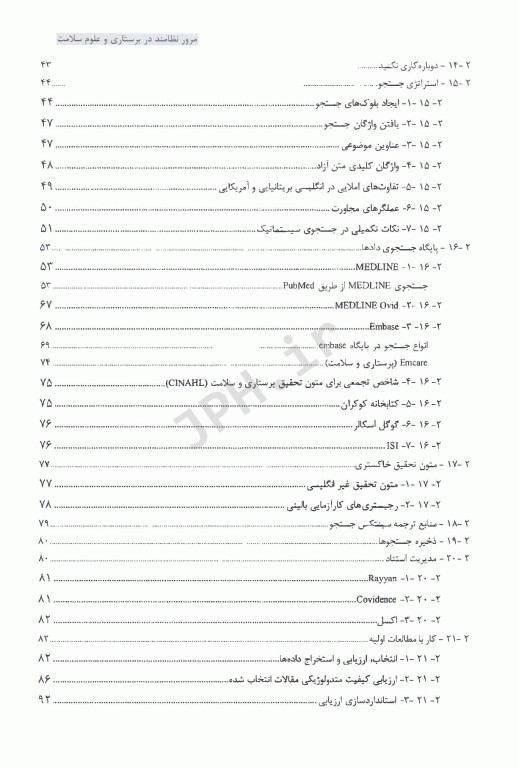 مرور نظامند در پرستاری و علوم سلامت
۲ -۱۴ - دوباره‌کاری نکنید ۴۳
۲ -۱۵ - استراتژی جستجو ۴۴
۲- ۱۵ -۱- ایجاد بلوک‌های جستجو ۴۴
۲- ۱۵ -۲- یافتن واژگان جستجو ۴۷
۲- ۱۵ -۳- عناوین موضوعی ۴۷
۲- ۱۵ -۴- واژگان کلیدی متن آزاد ۴۸
۲- ۱۵ -۵- تفاوت‌های املایی در انگلیسی بریتانیایی و آمریکایی ۴۹
۲- ۱۵ -۶- عملگرهای مجاورت ۵۰
۲- ۱۵ -۷- نکات تکمیلی در جستجوی سیستماتیک ۵۱
۲ -۱۶ - پایگاه جستجوی دادها ۵۳
۲- ۱۶ -۱- MEDLINE ۵۳
جستجوی MEDLINE از طریق PubMed ۵۳
۲- ۱۶ -۲- MEDLINE Ovid ۶۷
۲- ۱۶ -۳- Embase ۶۸
انواع جستجو در پایگاه embase ۶۹
Emcare (پرستاری و سلامت) ۷۴
۲- ۱۶ -۴- شاخص تجمعی برای متون تحقیق پرستاری و سلامت (CINAHL) ۷۵
۲- ۱۶ -۵- کتابخانه کوکران ۷۵
۲- ۱۶ -۶- گوگل اسکالر ۷۶
۲- ۱۶ -۷- ISI ۷۶
۲ -۱۷ - متون تحقیق خاکستری ۷۷
۲- ۱۷ -۱- متون تحقیق غیر انگلیسی ۷۷
۲- ۱۷ -۲- رجیستری‌های کارآزمایی بالینی ۷۸
۲ -۱۸ - منابع ترجمه سینتکس جستجو ۷۹
۲ -۱۹ - ذخیره جستجوها ۸۰
۲ -۲۰ - مدیریت استناد ۸۰
۲- ۲۰ -۱- Rayyan ۸۱
۲- ۲۰ -۲- Covidence ۸۱
۲- ۲۰ -۳- اکسل ۸۲
۲ -۲۱ - کار با مطالعات اولیه ۸۲
۲- ۲۱ -۱- انتخاب، ارزیابی و استخراج داده‌ها ۸۲
۲- ۲۱ -۲- ارزیابی کیفیت متدولوژیکی مقالات انتخاب شده ۸۶
۲- ۲۱ -۳- استانداردسازی ارزیابی ۹۲
JPH.ir